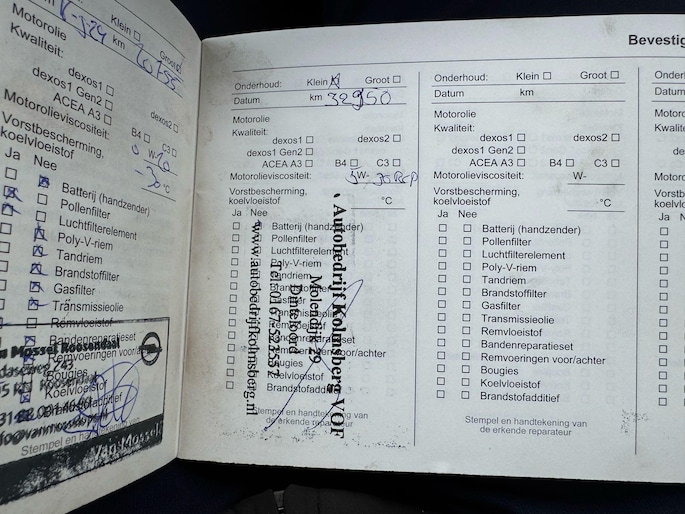 Motorolie
km
Kwaliteit:
dexos1
dexos1 Gen2
dexos2
ACEA A3
B4 C3
Motorolieviscositeit:
W-
Vorstbescherming,
koelvloeistof
°C
Ja Nee
Batterij (handzender)
Pollenfilter
Luchtfilterelement
Poly-V-riem
Tandriem
Brandstoffilter
Gasfilter
Transmissieolie
Remvloeistof
Bandenreparatieset
Remvoeringen voor/achter
Bougies
Koelvloeistof
Brandstofadditief
Mossel Roosendaal
Stempel en handtekening van
Van Mossel
Onderhoud: Klein Groot
Datum km 32950
Motorolie
Kwaliteit:
dexos1 dexos2
dexos1 Gen2
ACEA A3 B4 C3
Motorolieviscositeit: 5W-30
Vorstbescherming,
koelvloeistof °C
Ja Nee
Batterij (handzender)
Pollenfilter
Luchtfilterelement
Poly-V-riem
Tandriem
Brandstoffilter
Gasfilter
Transmissieolie
Remvloeistof
Bandenreparatieset
Remvoeringen voor/achter
Bougies
Koelvloeistof
Brandstofadditief
Stempel en handtekening van
de erkende reparateur
Autobedrijf Kolmsberg VOF
Molendijk 29
Dinteloord
www.autobedrijfkolmsberg.nl
Bevestig
Onderhoud: Klein Groot
Datum km
Motorolie
Kwaliteit:
dexos1 dexos2
dexos1 Gen2
ACEA A3 B4 C3
Motorolieviscositeit: W-
Vorstbescherming,
koelvloeistof °C
Ja Nee
Batterij (handzender)
Pollenfilter
Luchtfilterelement
Poly-V-riem
Tandriem
Brandstoffilter
Gasfilter
Transmissieolie
Remvloeistof
Bandenreparatieset
Remvoeringen voor/achter
Bougies
Koelvloeistof
Brandstofadditief
Stempel en handtekening van
de erkende reparateur
Onderh
Datum
Motoro
Kwalite
Motoro
Vorstb
koelvlo
Ja N